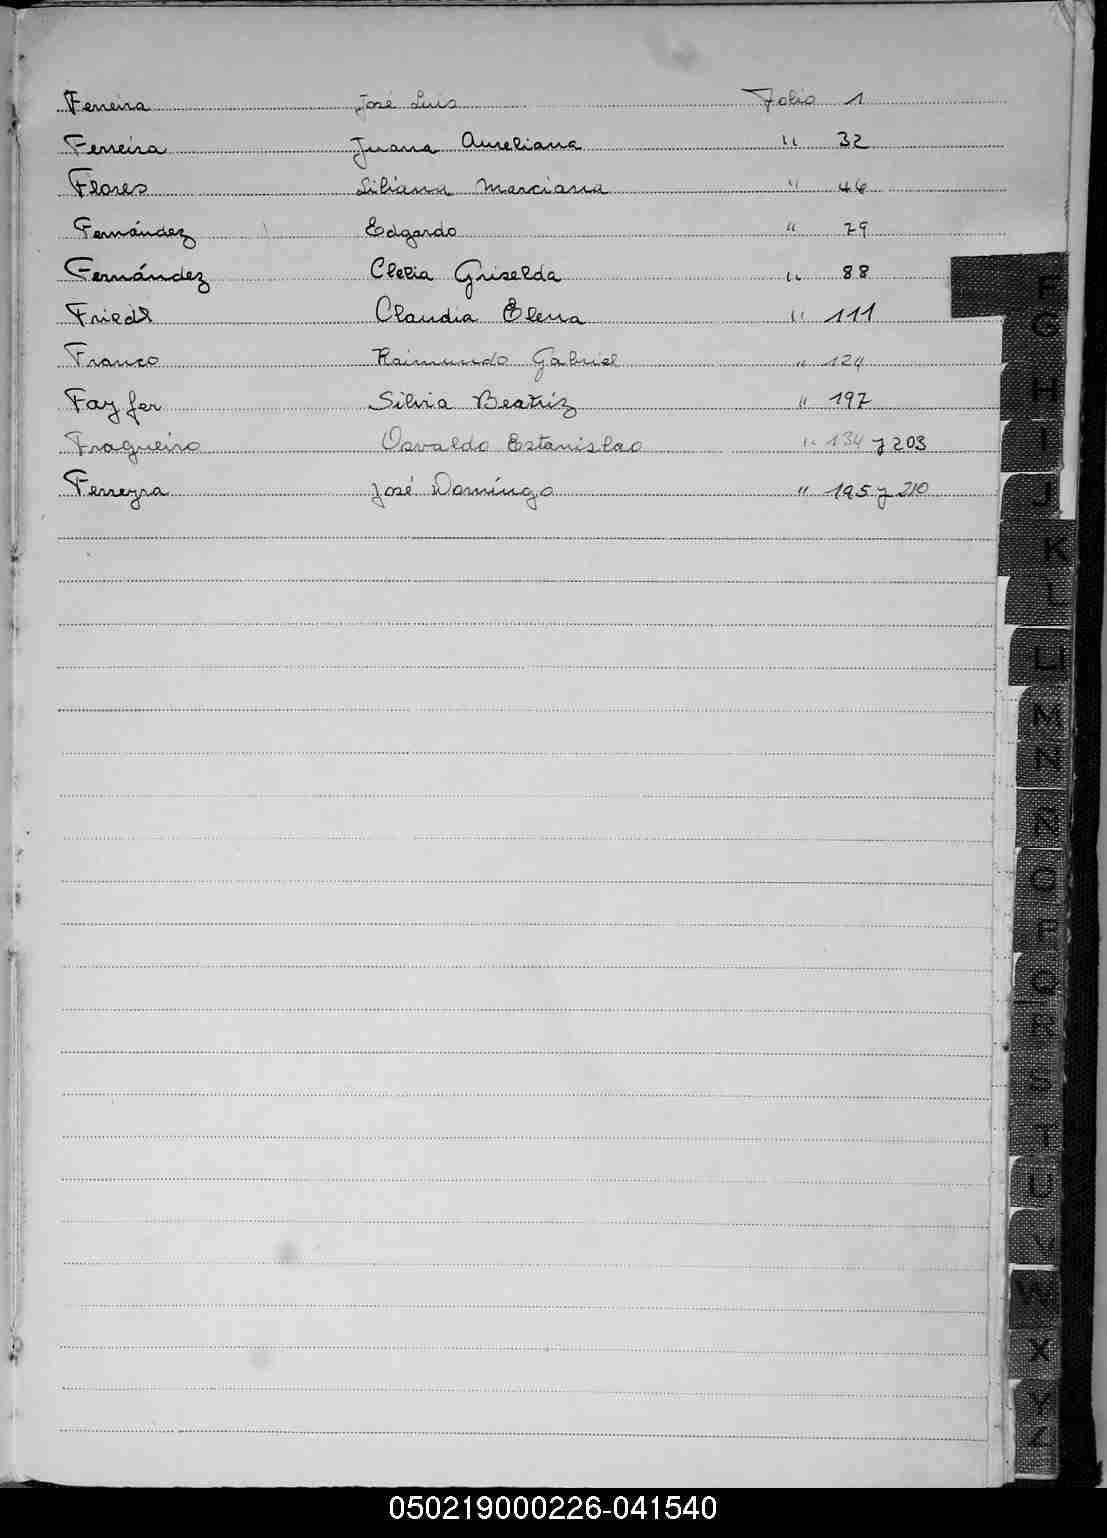 Ferreira José Luis Folio 1
Ferreira Juana Aureliana " 32
Flores Liliana Marciana " 46
Fernández Edgardo " 79
Fernández Clelia Griselda " 88
Friedl Claudia Elena " 111
Franco Raimundo Gabriel " 124
Fayfer Silvia Beatriz " 197
Fragueiro Osvaldo Estanislao " 134 y 203
Ferreyra José Domingo " 195 y 210
F
G
H
I
J
K
L
LL
M
N
Ñ
O
P
Q
R
S
T
U
V
W
X
Y
Z
050219000226-041540